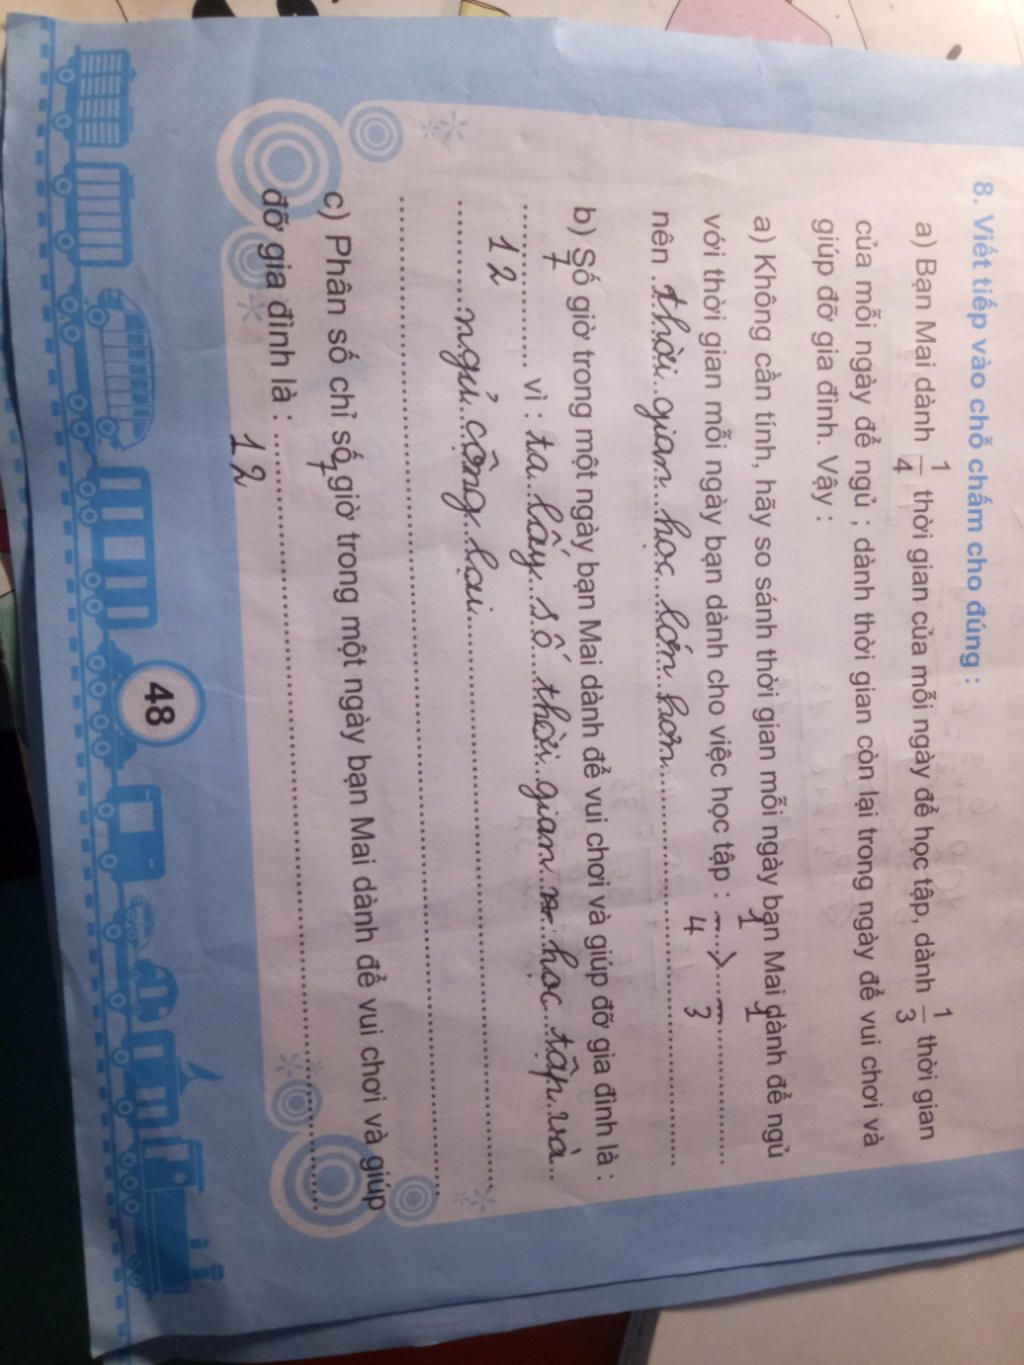 8. Viết tiếp vào chỗ chấm cho đúng :
a) Bạn Mai dành 1/4 thời gian của mỗi ngày để học tập, dành 1/3 thời gian
của mỗi ngày để ngủ ; dành thời gian còn lại trong ngày để vui chơi và
giúp đỡ gia đình. Vậy :
a) Không cần tính, hãy so sánh thời gian mỗi ngày bạn Mai dành để ngủ
với thời gian mỗi ngày bạn dành cho việc học tập : 1/4 > 1/3
nên thời gian học lớn hơn
b) Số giờ trong một ngày bạn Mai dành để vui chơi và giúp đỡ gia đình là :
7/12 vì : ta lấy số thời gian học tập và
ngủ cộng lại
c) Phân số chỉ số giờ trong một ngày bạn Mai dành để vui chơi và giúp
đỡ gia đình là : 7/12
48